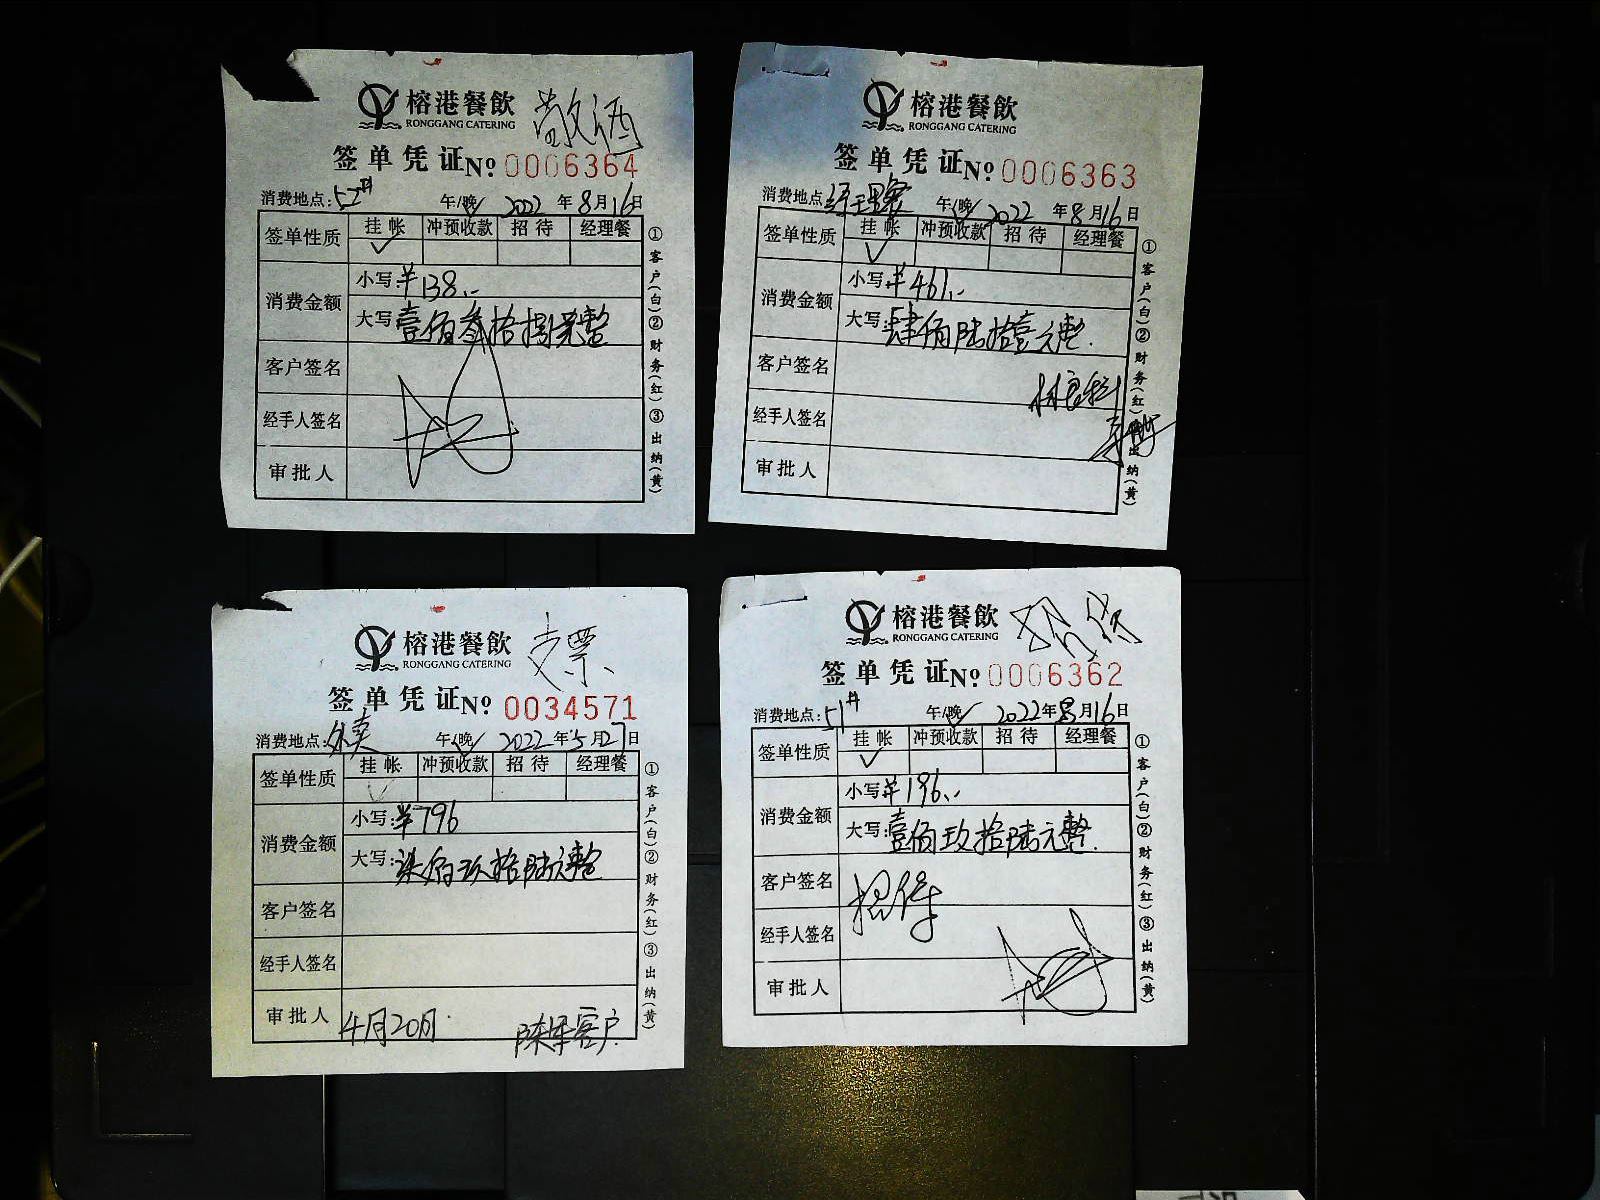 榕港餐飲 敬酒
RONGGANG CATERING
签单凭证 № 0006364
消费地点: 52# 午/晚✓ 2022年8月16日
签单性质 挂帐 冲预收款 招待 经理餐
✓
消费金额 小写: ¥138.-
大写: 壹佰叁拾捌元整
客户签名
经手人签名
审批人
①客户(白)②财务(红)③出纳(黄)
榕港餐飲
RONGGANG CATERING
签单凭证 № 0006363
消费地点: 经理餐 午/晚✓ 2022年8月16日
签单性质 挂帐 冲预收款 招待 经理餐
✓
消费金额 小写: ¥461.-
大写: 肆佰陆拾壹元整.
客户签名
经手人签名
审批人
①客户(白)②财务(红)③出纳(黄)
榕港餐飲 支票
RONGGANG CATERING
签单凭证 № 0034571
消费地点: 外卖 午/晚✓ 2022年5月27日
签单性质 挂帐 冲预收款 招待 经理餐
✓
消费金额 小写: ¥796
大写: 柒佰玖拾陆元整
客户签名
经手人签名
审批人 4月20日. 客户.
①客户(白)②财务(红)③出纳(黄)
榕港餐飲
RONGGANG CATERING
签单凭证 № 0006362
消费地点: 51# 午/晚✓ 2022年8月16日
签单性质 挂帐 冲预收款 招待 经理餐
✓
消费金额 小写: ¥196.-
大写: 壹佰玖拾陆元整.
客户签名 招待
经手人签名
审批人
①客户(白)②财务(红)③出纳(黄)